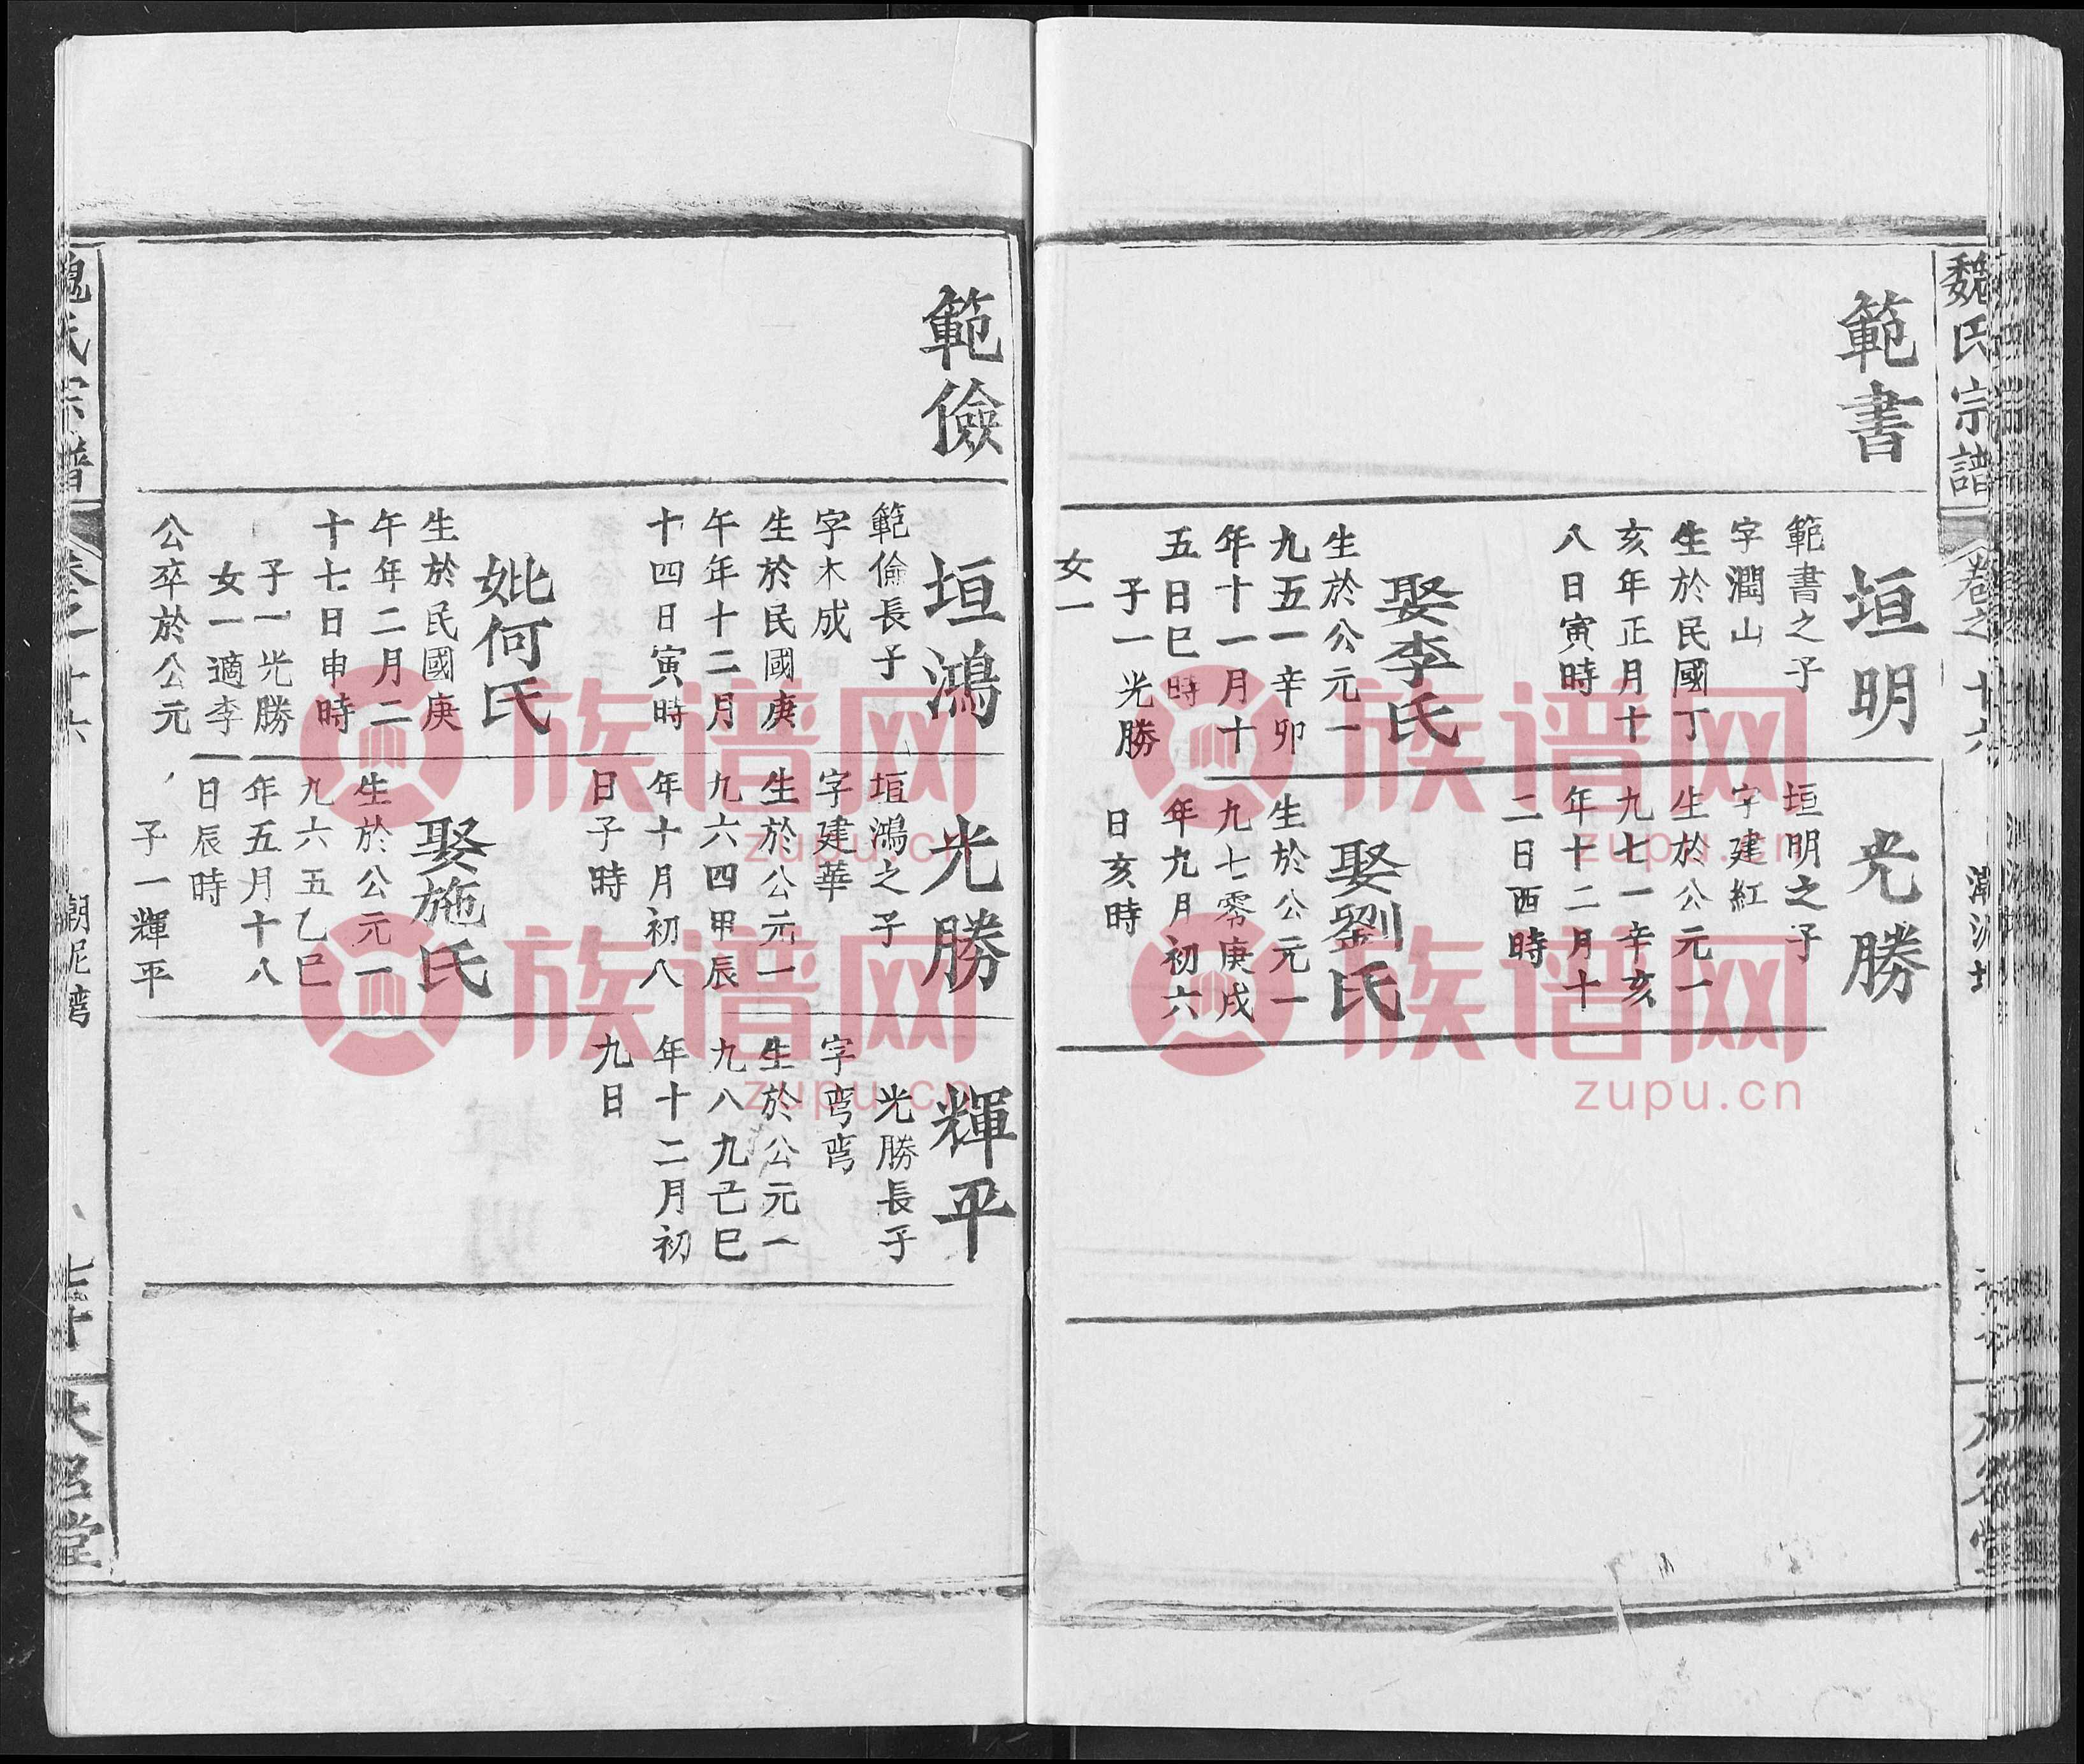 魏氏宗譜
卷之十六
範書
垣明
範書之子
字潤山
生於民國丁
亥年正月十
八日寅時
娶李氏
生於公元一
九五一辛卯
年十一月十
五日巳時
子一光勝
女一
光勝
垣明之子
字建紅
生於公元一
九七一辛亥
年十二月十
二日酉時
娶劉氏
生於公元一
九七零庚戌
年九月初六
日亥時
範儉
垣鴻
範儉長子
字木成
生於民國庚
午年十二月
十四日寅時
妣何氏
生於民國庚
午年二月二
十七日申時
子一光勝
女一適李
公卒於公元
光勝
垣鴻之子
字建華
生於公元一
九六四甲辰
年十月初八
日子時
娶施氏
生於公元一
九六五乙巳
年五月十八
日辰時
子一輝平
輝平
光勝長子
字弯弯
生於公元一
九八九己巳
年十二月初
九日
魏氏宗譜
卷之十六
潮泥灣
七十
族谱网
zupu.cn
族谱网
zupu.cn
族谱网
zupu.cn
族谱网
zupu.cn